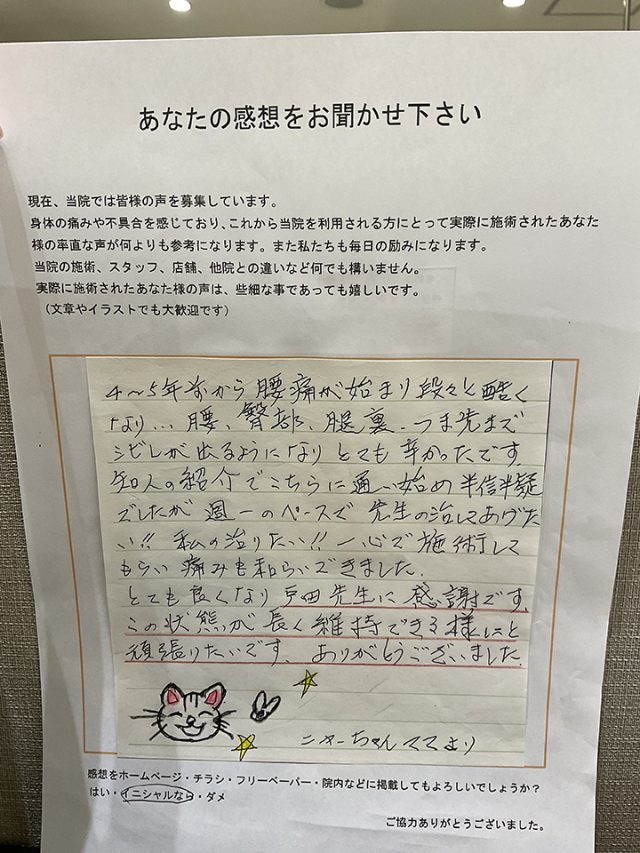 あなたの感想をお聞かせ下さい
現在、当院では皆様の声を募集しています。
身体の痛みや不具合を感じており、これから当院を利用される方にとって実際に施術されたあなた
様の率直な声が何よりも参考になります。また私たちも毎日の励みになります。
当院の施術、スタッフ、店舗、他院との違いなど何でも構いません。
実際に施術されたあなた様の声は、些細な事であっても嬉しいです。
（文章やイラストでも大歓迎です）
4〜5年前から腰痛が始まり段々と酷く
なり… 腰、臀部、腿裏、つま先まで
シビレが出るようになりとても辛かったです。
知人の紹介でこちらに通い始め半信半疑
でしたが週一のペースで先生の治してあげた
い!! 私の治りたい!! 一心で施術して
もらい痛みも和らいできました。
とても良くなり戸田先生に感謝です。
この状態が長く維持できる様にと
頑張りたいです。ありがとうございました。
ニャーちゃんママより
感想をホームページ・チラシ・フリーペーパー・院内などに掲載してもよろしいでしょうか？
はい・イニシャルなら・ダメ
ご協力ありがとうございました。